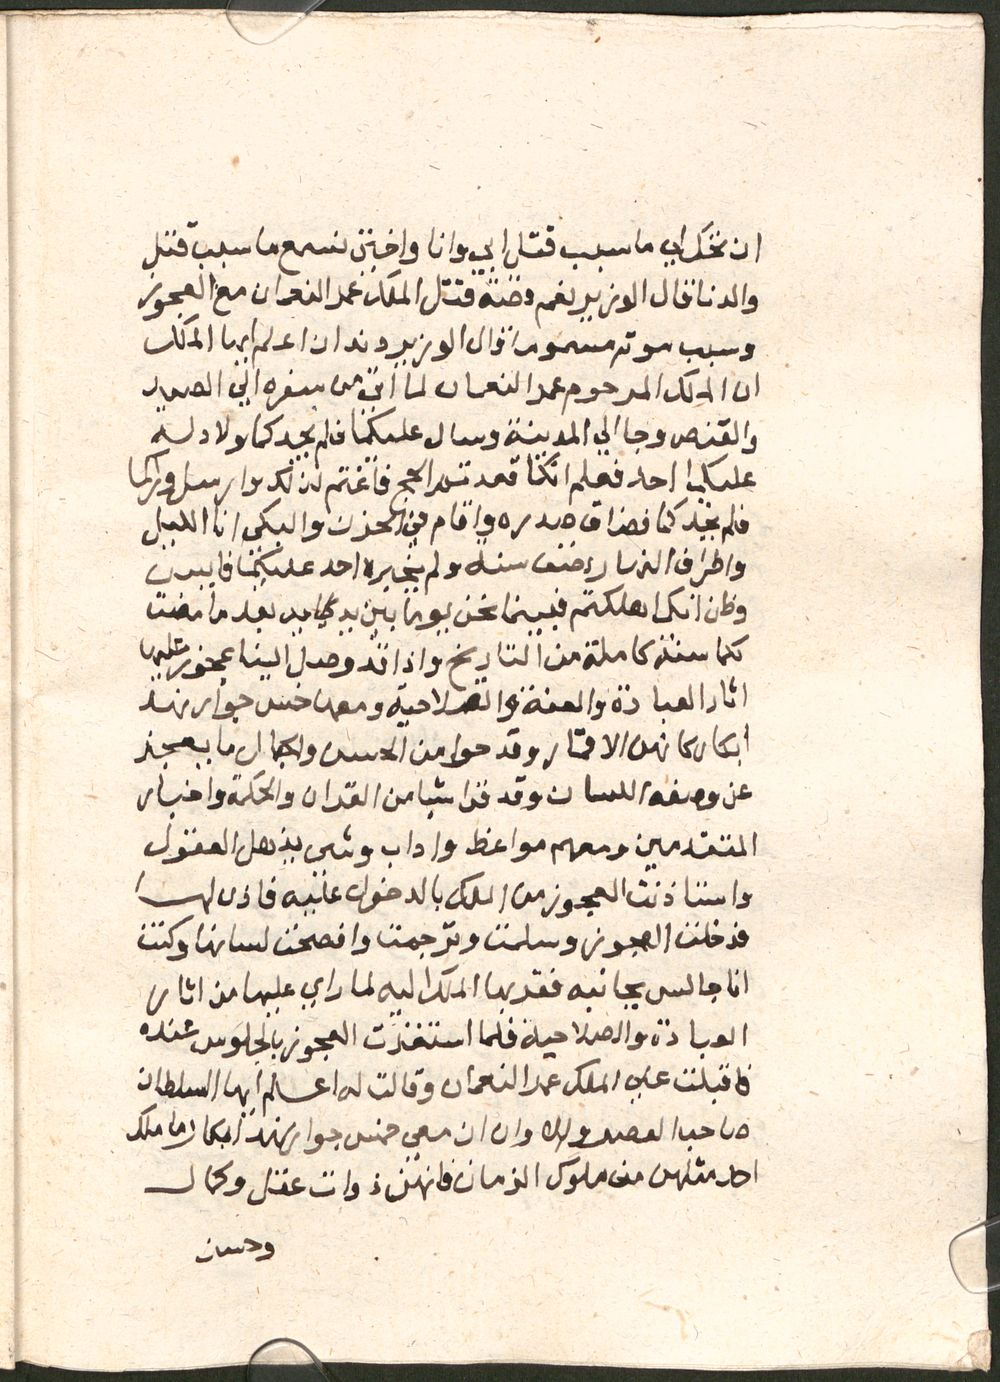 ان تحكي لي ما سبب قتل ابي وانا واختي نسمع ما سبب قتل
والدنا قال الوزير نعم وقصة قتل الملك عمر النعمان مع العجوز
وسبب موته مسموما قال الوزير دندان اعلم ايها الملك
ان الملك المرحوم عمر النعمان لما اتى من سفره الي الصيد
والقنص وجا الي المدينة وسال عليكما فلم يجدكما ولا دله
عليكما احد فعلم انكما قصدتم الحج فاغتم لذلك وارسل وراكما
فلم يجدكما فضاق صدره واقام في الحزن والبكي انا الليل
واطراف النهار نصف سنه ولم يخبره احد عليكما فايس
وظن انكما هلكتم فبينما نحن يوما بين يديه بعد ما مضت
لكما سنة كاملة من التاريخ واذا قد وصل الينا عجوز عليها
اثار العبادة والعفة والصلاحية ومعها خمس جوار نهد
ابكار كانهن الاقمار وقد حوا من الحسن والجمال ما يعجز
عن وصفه اللسان وقد قرا شيا من القران والحكمة واخبار
المتقدمين ومعهم مواعظ واداب وشي يذهل العقول
واستاذنت العجوز من الملك بالدخول عليه فاذن لها
فدخلت العجوز وسلمت وترجمت وافصحت لسانها وكنت
انا جالس بجانبه فقربها الملك اليه لما راي عليها من اثار
العبادة والصلاحية فلما استقرت العجوز بالجلوس عنده
فاقبلت علي الملك عمر النعمان وقالت له اعلم ايها السلطان
صاحب العصر والاوان ان معي خمس جوار نهد ابكار ما ملك
احد مثلهن من ملوك الزمان فانهن ذوات عقل وكمال
وحسن